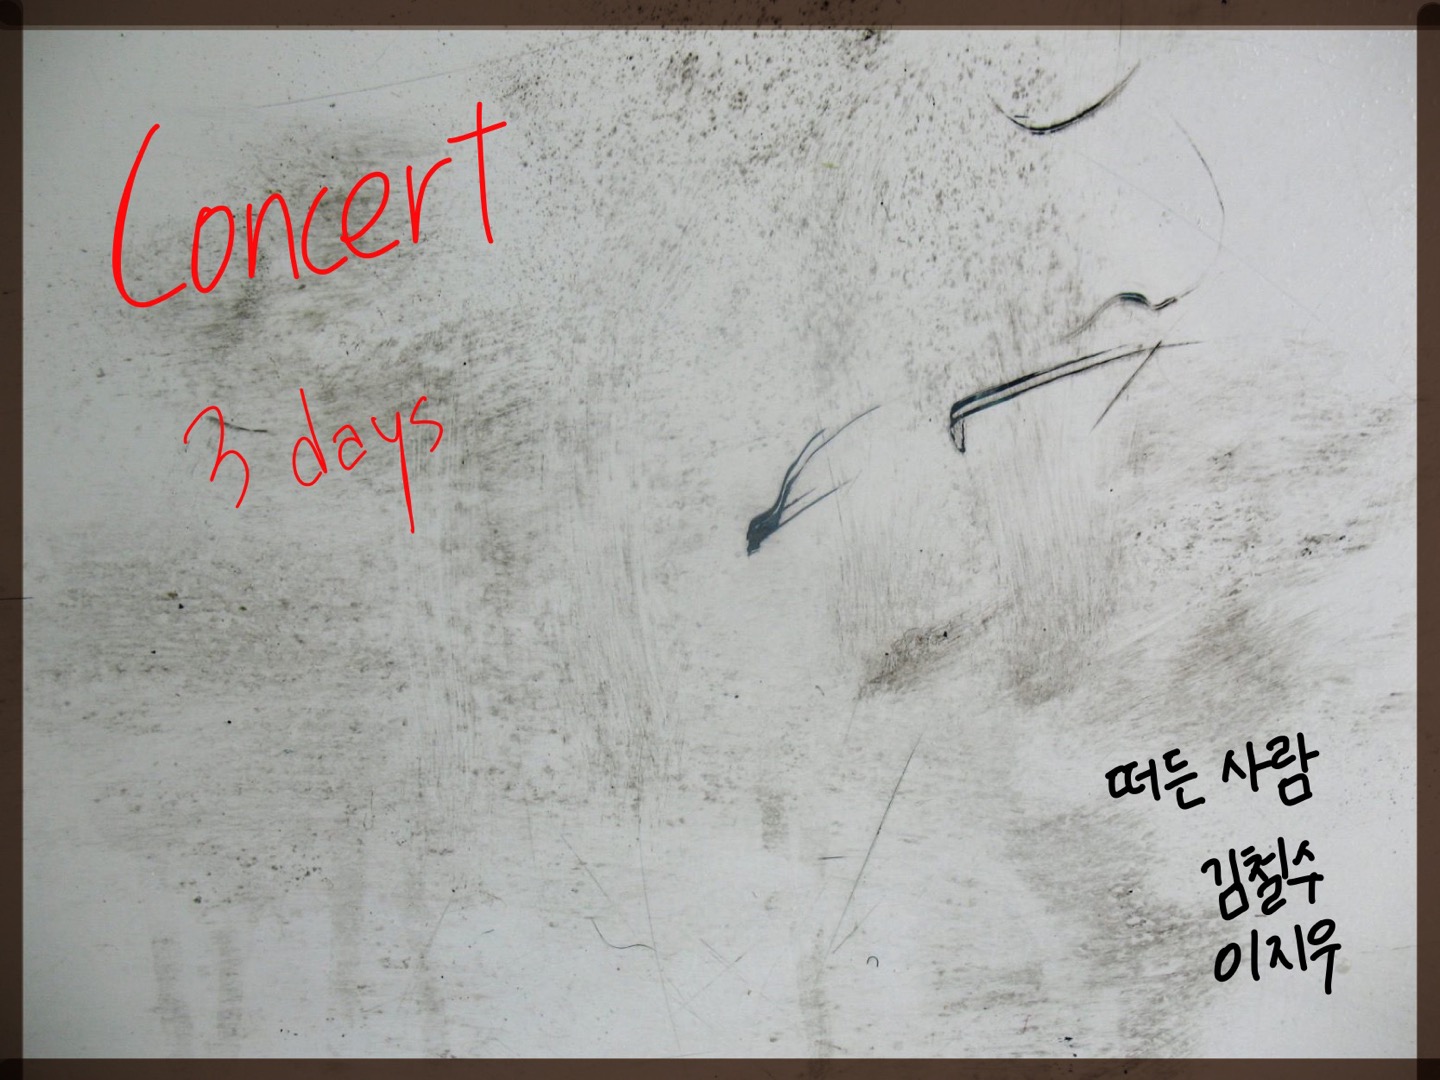 Concert
3 days
떠든 사람
김철수
이지우